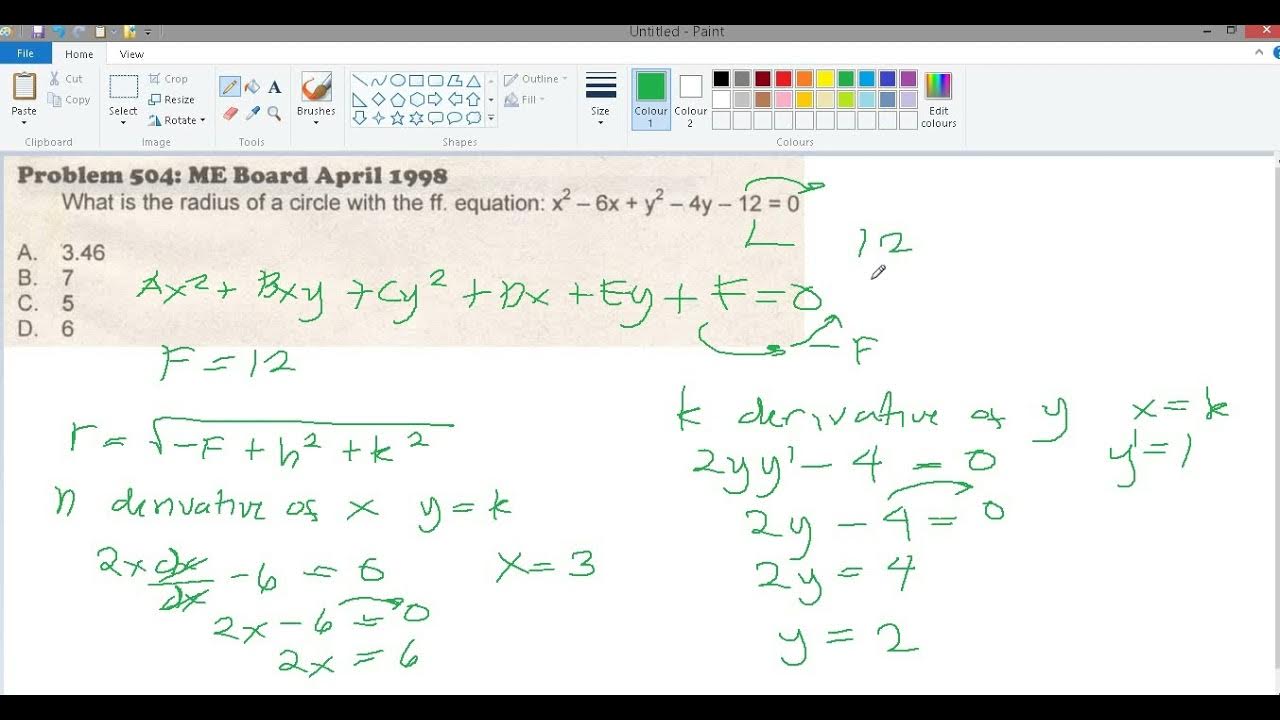 Untitled - Paint
File Home View
Paste
Cut
Copy
Clipboard
Select
Crop
Resize
Rotate
Image
A
Tools
Brushes
Outline
Fill
Shapes
Size
Colour 1
Colour 2
Edit colours
Colours
Problem 504: ME Board April 1998
What is the radius of a circle with the ff. equation: x² – 6x + y² – 4y – 12 = 0
A. 3.46
B. 7
C. 5
D. 6
12
Ax² + Bxy + Cy² + Dx + Ey + F = 0
– F
F = 12
r = √-F + h² + k²
h derivative of x y = k
2x dx/dx - 6 = 6
x = 3
2x - 6 = 0
2x = 6
k derivative of y x = k
2yy' - 4 = 0 y' = 1
2y - 4 = 0
2y = 4
y = 2